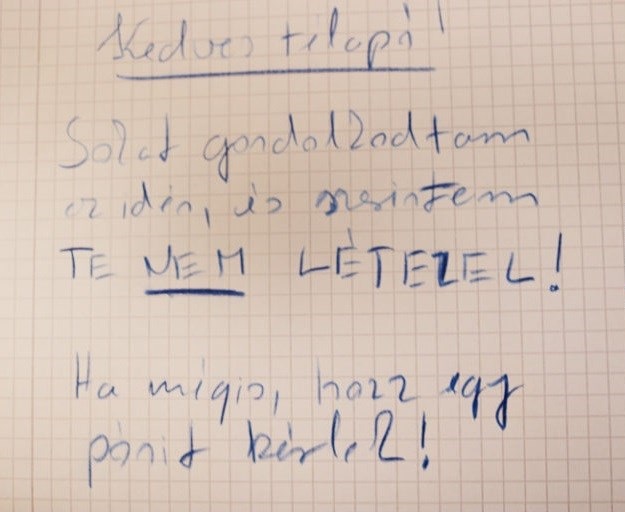 Kedves télapó!
Sokat gondolkodtam
az idén, és szerintem
TE NEM LÉTEZEL!
Ha mégis, hozz egy
pónit kérlek!